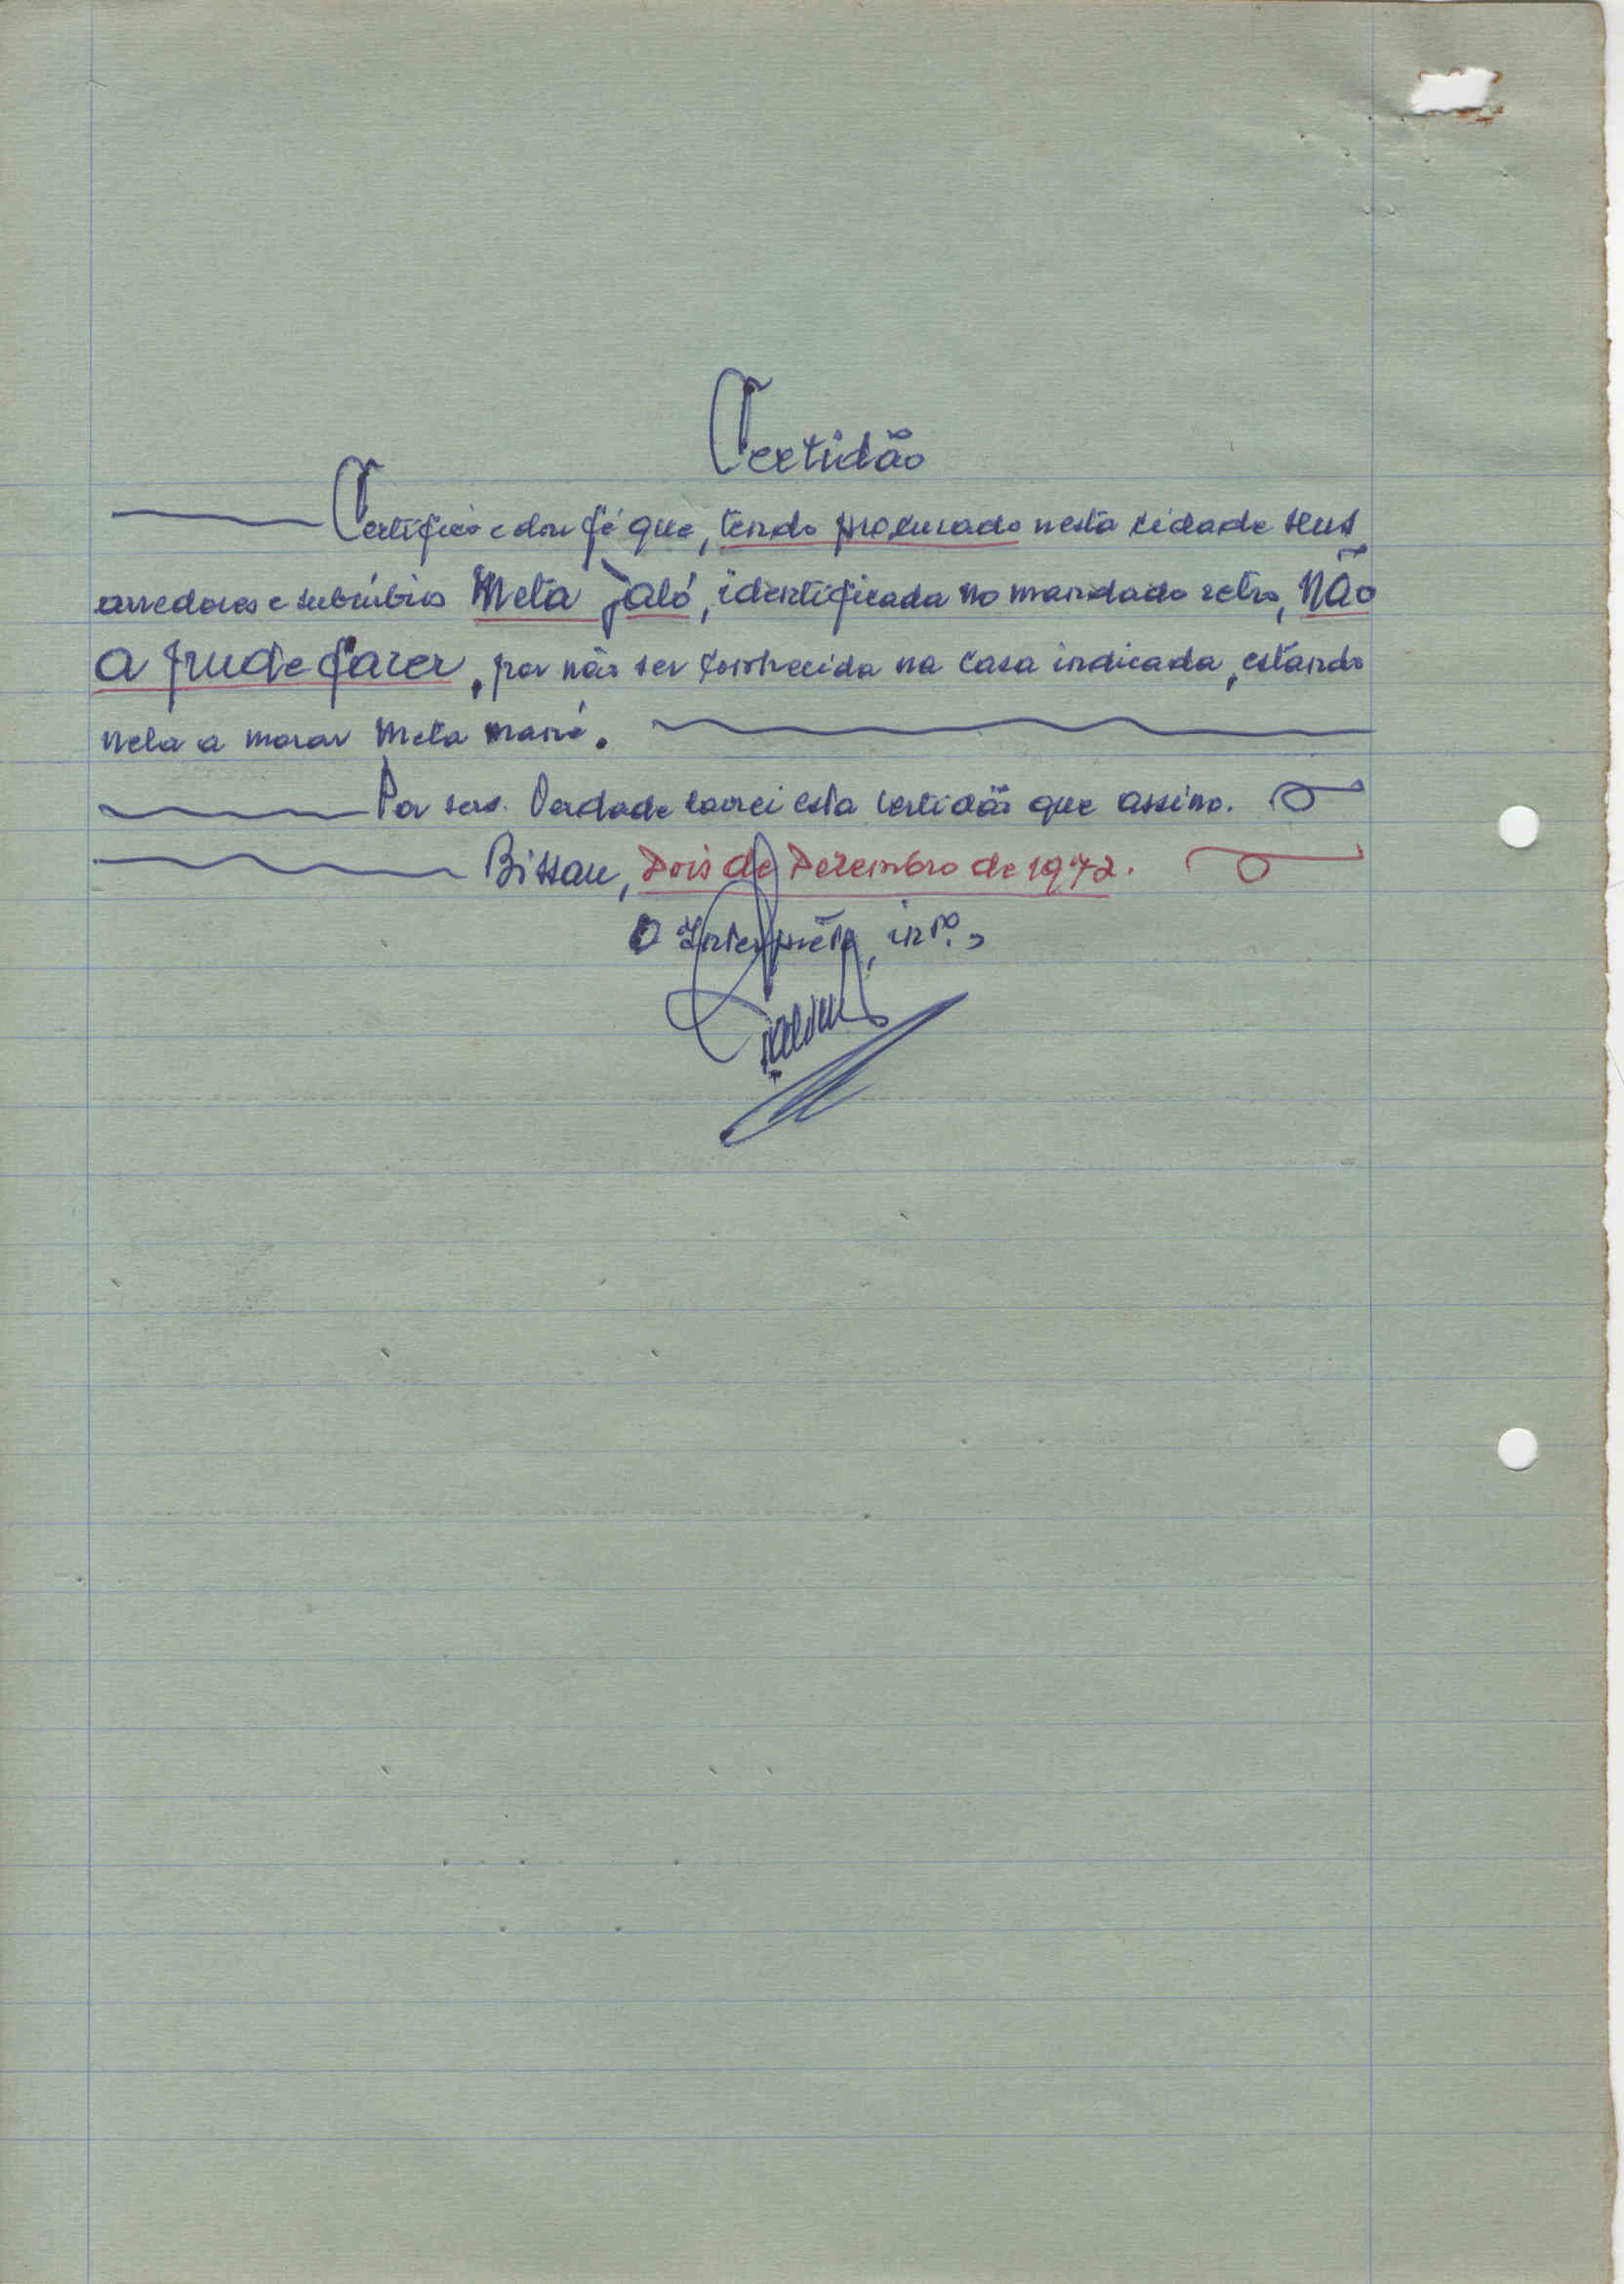 Certidão
Certifico e dou fé que, tendo procurado nesta cidade seus
arredores e subúrbios Meta Jaló, identificada no mandado retro, não
a pude fazer, por não ser conhecida na casa indicada, estando
nela a morar Meta mané.
Por ser Verdade lavrei esta certidão que assino.
Bissau, Dois de Dezembro de 1972.
O Intérprete, intº.,